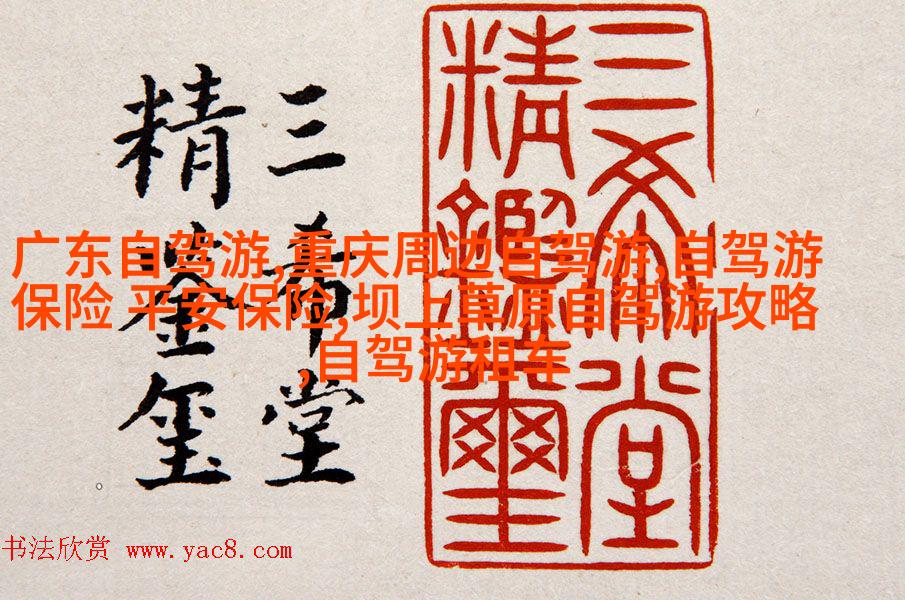 三希堂
精鑑璽
三希堂
精鉴玺
广东自驾游,重庆周边自驾游,自驾游
保险 平安保险,坝上草原自驾游攻略
,自驾游租车
书法欣赏 www.yac8.com